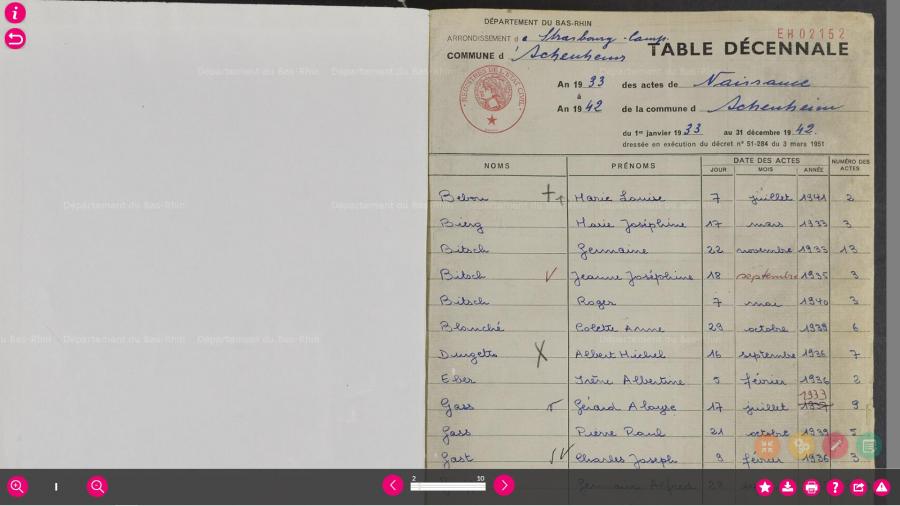 DÉPARTEMENT DU BAS-RHIN
EH02152
ARRONDISSEMENT de Strasbourg-Camp.
COMMUNE d'Achenheim
TABLE DÉCENNALE
REGISTRES DE L'ETAT CIVIL
An 1933 des actes de Naissance
à
An 1942 de la commune d Achenheim
du 1er janvier 1933 au 31 décembre 1942.
dressée en exécution du décret n° 51-284 du 3 mars 1951
NOMS PRÉNOMS DATE DES ACTES NUMÉRO DES ACTES
JOUR MOIS ANNÉE
Marie Louise 7 juillet 1941 2
Bierg Marie Joséphine 17 mars 1933 3
Bitsch Germaine 22 novembre 1933 13
Bitsch Jeanne Joséphine 18 septembre 1935 3
Bitsch Roger 7 mai 1940 3
Blanché Colette Anne 29 octobre 1939 6
Albert Michel 16 septembre 1936 7
Eber Irène Albertine 5 février 1936 2
1937
Gass Gérard Aloyse 17 juillet 9
Gass Pierre Paul 21 octobre 1939 5
Gast Charles Joseph 9 février 1936 3
Germain Alfred
Département du Bas-Rhin
2 10